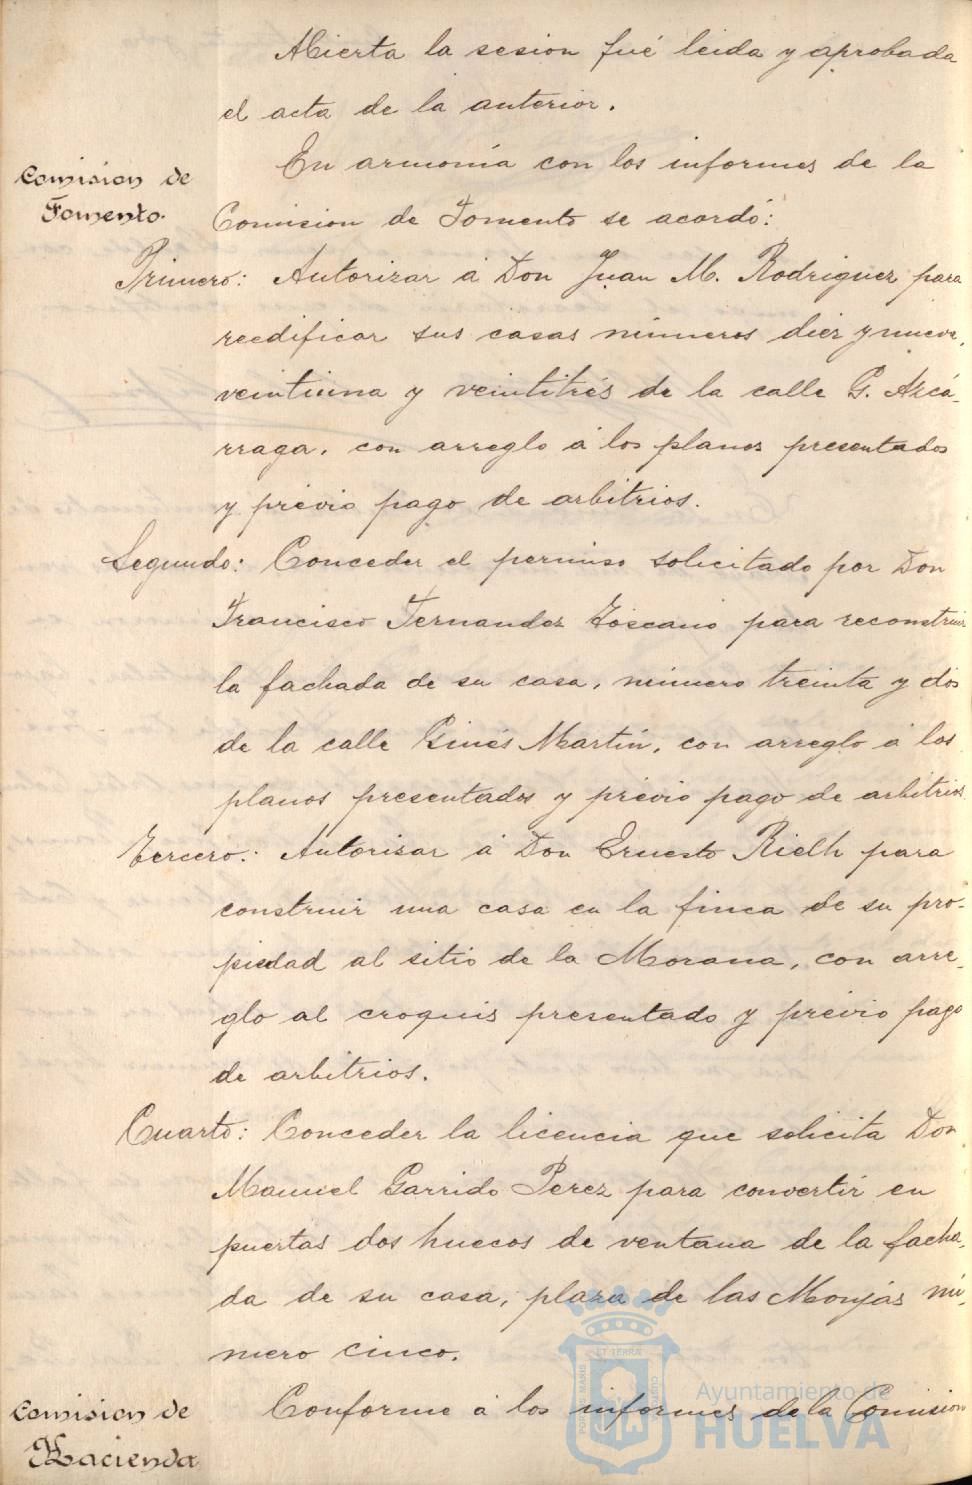 Abierta la sesion fué leida y aprobada
el acta de la anterior.
Comision de
Fomento.
En armonía con los informes de la
Comision de Fomento se acordó:
Primero: Autorizar á Don Juan M. Rodriguez para
reedificar sus casas números diez y nueve,
veintiuna y veintitrés de la calle G. Azcá-
rraga, con arreglo á los planos presentados
y prévio pago de arbitrios.
Segundo: Conceder el permiso solicitado por Don
Francisco Fernandez Toscano para reconstruir
la fachada de su casa, número treinta y dos
de la calle Ginés Martín, con arreglo á los
planos presentados y prévio pago de arbitrios.
Tercero: Autorisar á Don Ernesto Rielh para
construir una casa en la finca de su pro-
piedad al sitio de la Morana, con arre-
glo al croquis presentado y prévio pago
de arbitrios.
Cuarto: Conceder la licencia que solicita Don
Manuel Garrido Perez para convertir en
puertas dos huecos de ventana de la facha-
da de su casa, plaza de las Monjas nú-
mero cinco.
Comision de
Hacienda
Conforme á los informes de la Comision
PORTUS MARIS ET TERRÆ CUSTODIA
Ayuntamiento de
HUELVA